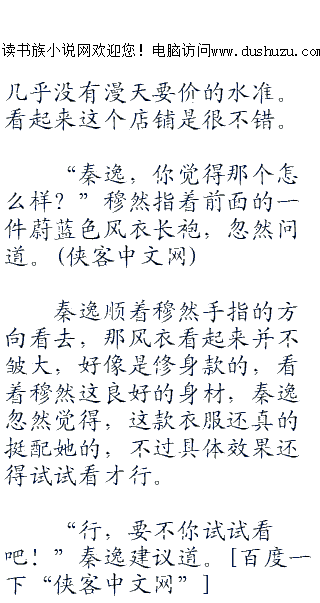 读书族小说网欢迎您！电脑访问www.dushuzu.com
几乎没有漫天要价的水准。
看起来这个店铺是很不错。
“秦逸，你觉得那个怎
么样？”穆然指着前面的一
件蔚蓝色风衣长袍，忽然问
道。(侠客中文网)
秦逸顺着穆然手指的方
向看去，那风衣看起来并不
皱大，好像是修身款的，看
着穆然这良好的身材，秦逸
忽然觉得，这款衣服还真的
挺配她的，不过具体效果还
得试试看才行。
“行，要不你试试看
吧！”秦逸建议道。[百度一
下“侠客中文网”]